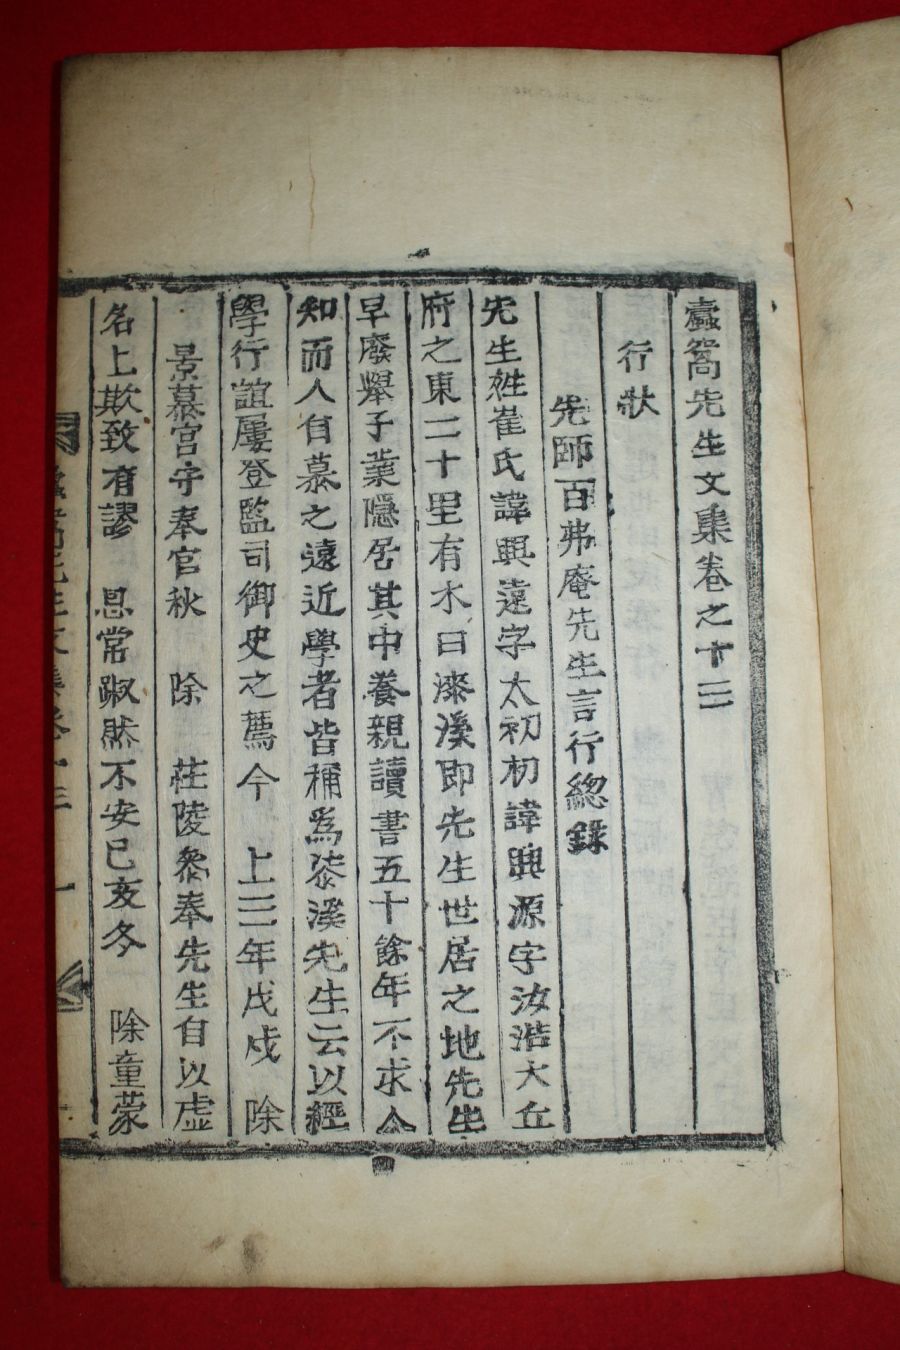 蠹窩先生文集卷之十三
行狀
先師百弗庵先生言行總錄
先生姓崔氏諱興遠字太初初諱興源字汝浩大丘
府之東二十里有水曰漆溪即先生世居之地先生
早廢擧子業隱居其中養親讀書五十餘年不求人
知而人自慕之遠近學者皆稱爲漆溪先生云以經
學行誼屢登監司御史之薦今 上三年戊戌 除
景慕宮守奉官秋 除 莊陵參奉先生自以虛
名上欺致有謬 恩常踧然不安己亥冬 除童蒙
蠹窩先生文集卷十三 一